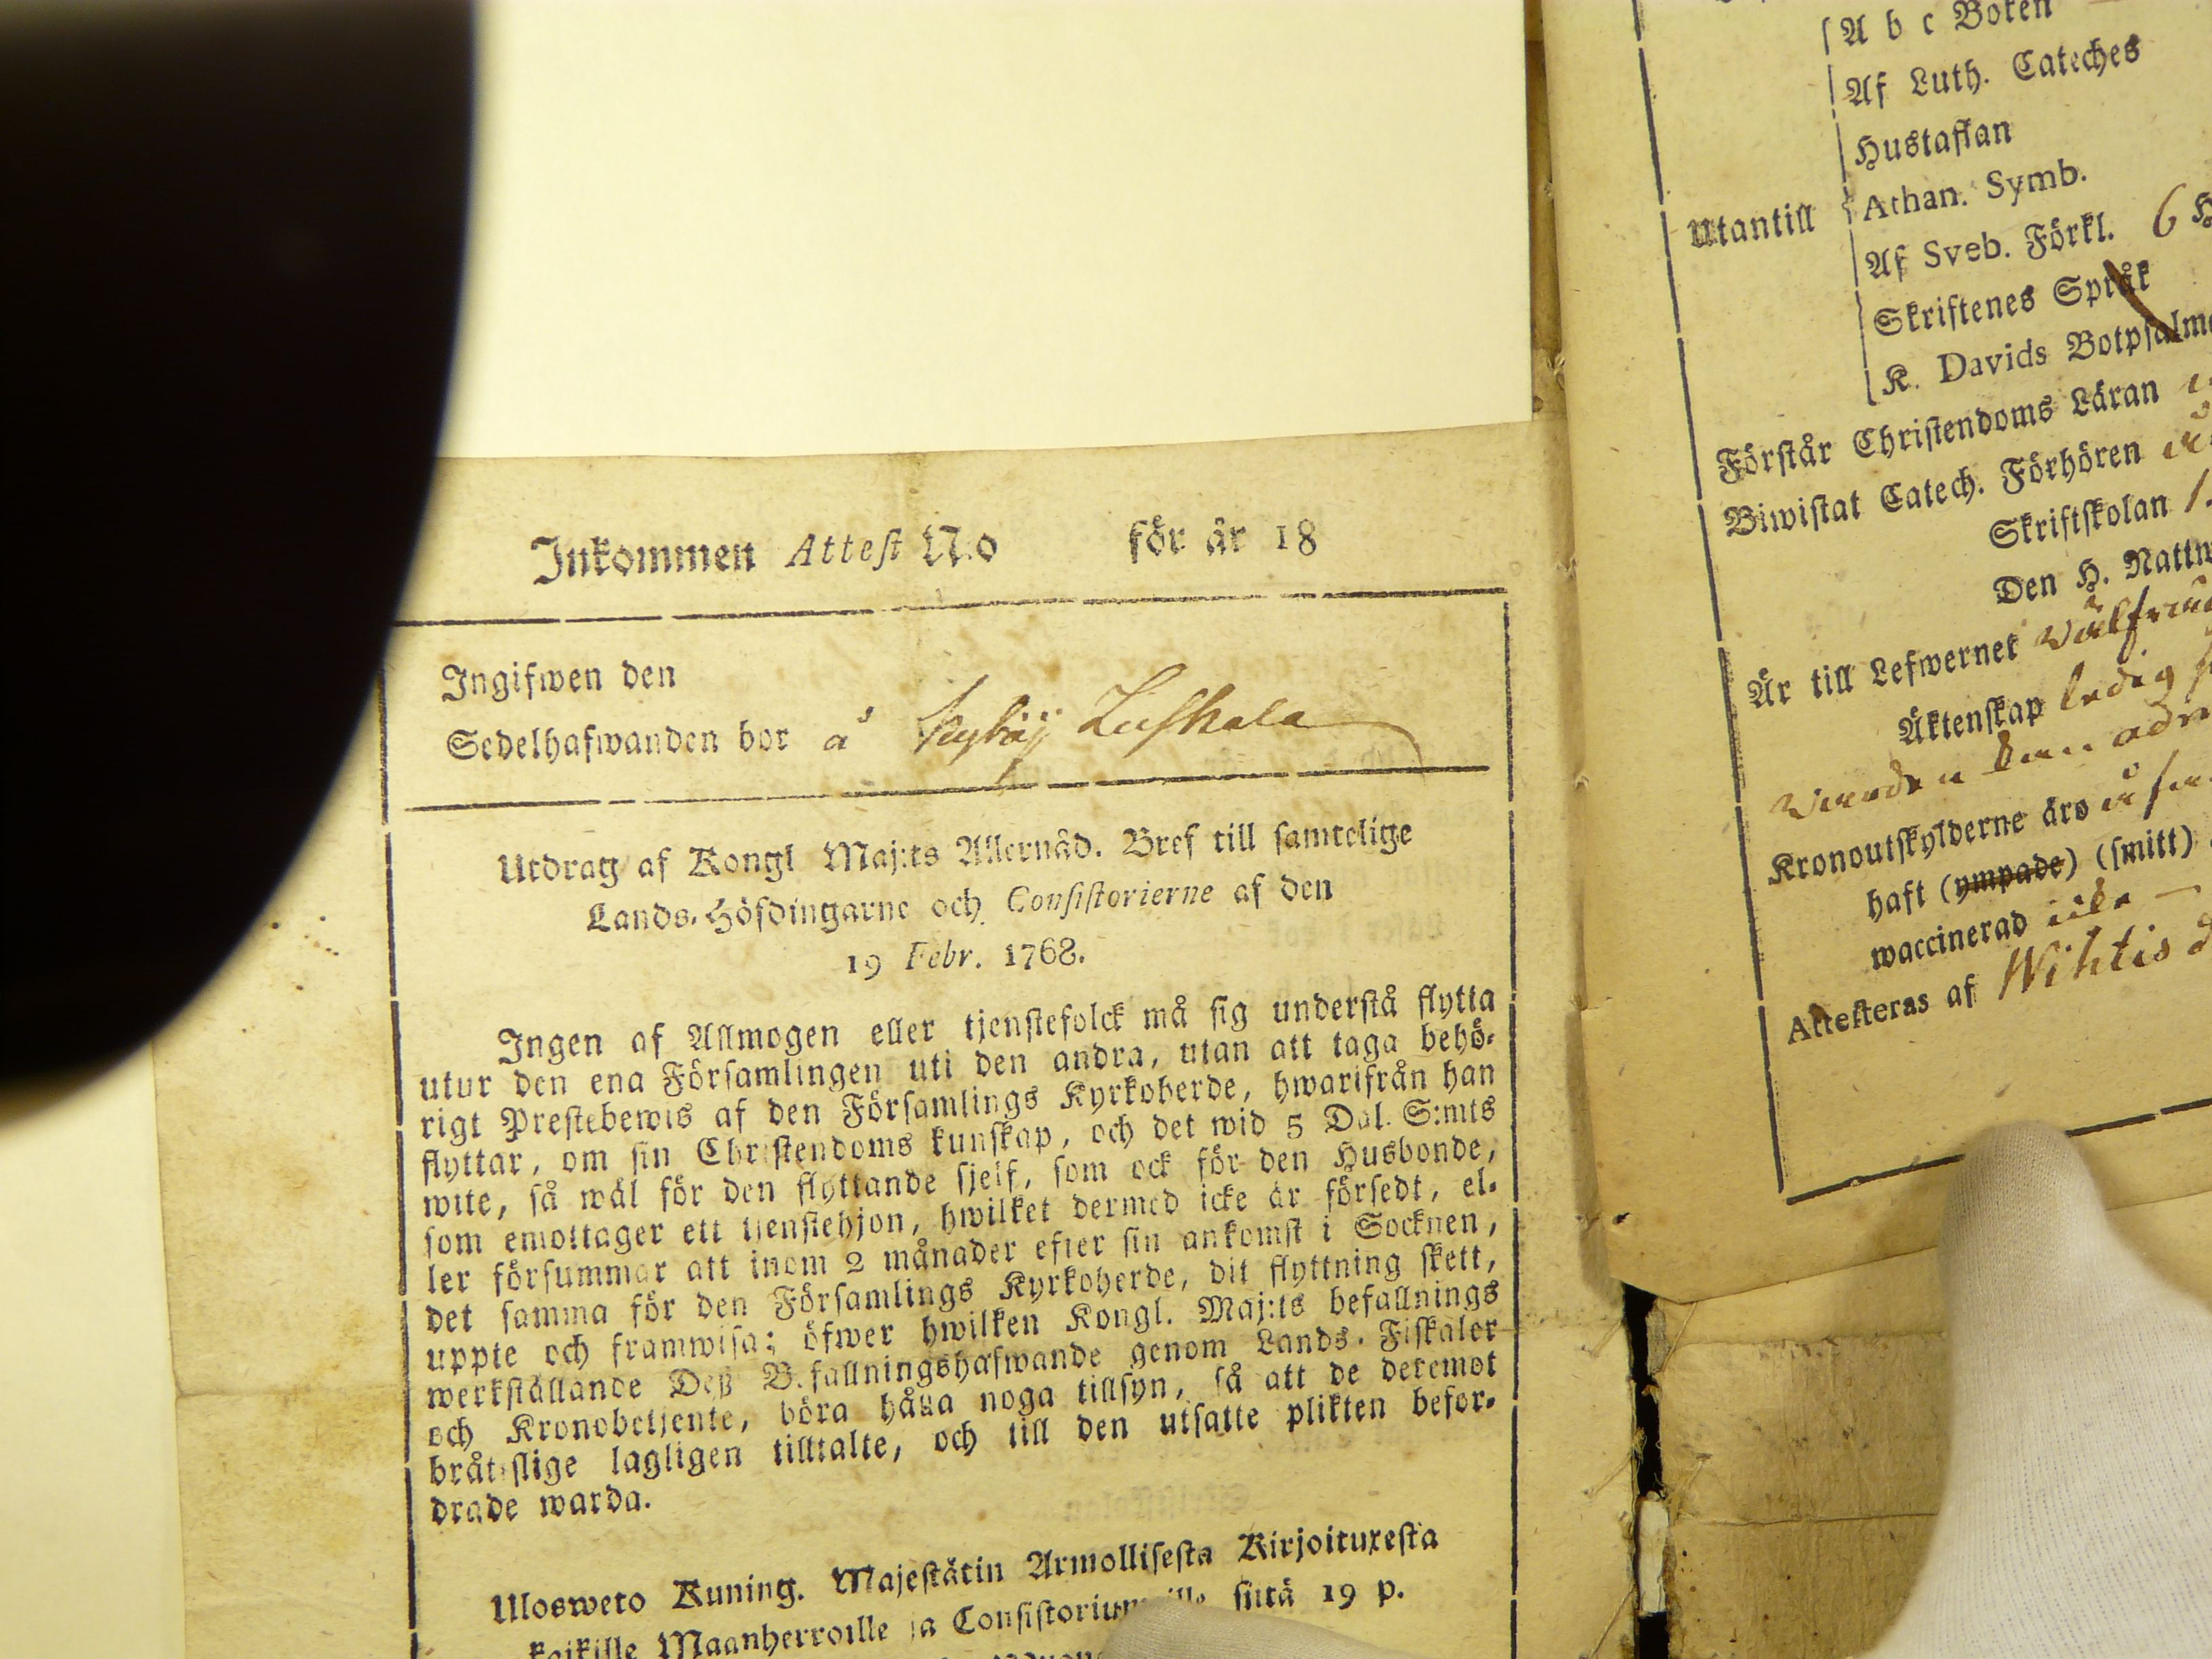 Inkommen Attest N:o för år 18
Ingifwen den
Sedelhafwanden bor å
Utdrag af Kongl Maj:ts Allernåd. Bref till samtelige
Lands-Höfdingarne och Consistorierne af den
19 Febr. 1768.
Ingen af Allmogen eller tjenstefolck må sig understå flytta
utur den ena Församlingen uti den andra, utan att taga behö-
rigt Prestebewis af den Församlings Kyrkoherde, hwarifrån han
flyttar, om sin Christendoms kunskap, och det wid 5 Dal. S:mts
wite, så wäl för den flyttande sjelf, som ock för den Husbonde,
som emottager ett tjenstehjon, hwilket dermed icke är försedt, el-
ler försummar att inom 2 månader efter sin ankomst i Socknen,
det samma för den Församlings Kyrkoherde, dit flyttning skett,
uppte och framwisa; öfwer hwilken Kongl. Maj:ts befallnings
werkställande Deß Befallningshafwande genom Lands-Fiskaler
och Kronobetjente, böra hålla noga tillsyn, så att de deremot
bråtslige lagligen tilltalte, och till den utsatte plikten befor-
drade warda.
Ulosweto Kuning. Majestätin Armollisesta Kirjoituxesta
kaikille Maanherroille ja siitä 19 p.
A b c Boken
Af Luth. Cateches
Hustaflan
Utantill Athan. Symb.
Af Sveb. Förkl. 6 H
Skriftenes Språk
K. Davids Botpsalm
Förstår Christendoms Läran
Biwistat Catech. Förhören
Skriftskolan 1.
Den H. Nattw
Är till Lefwernet
Äktenskap ledig
Kronoutskylderne äro
haft (ympade) (smitt)
waccinerad icke —
Attesteras af Wihtis d